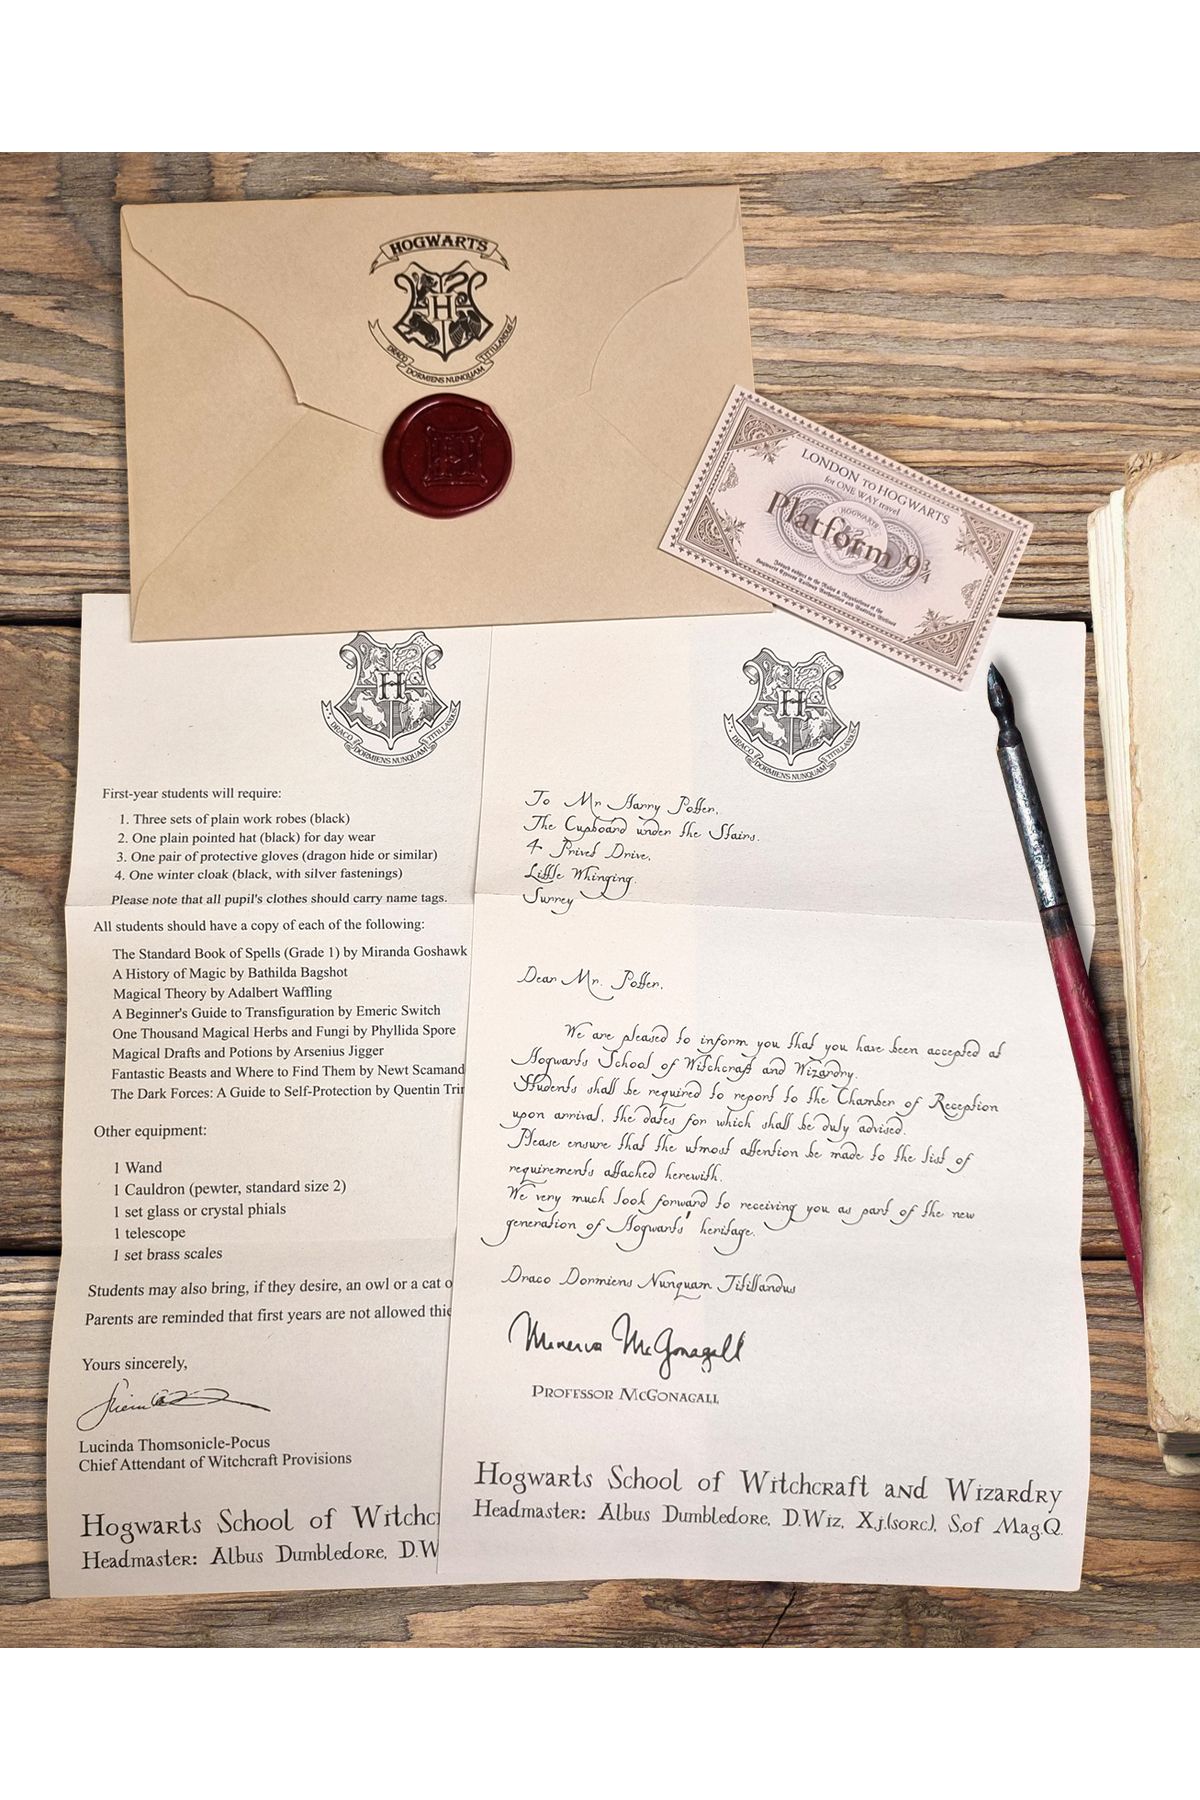 HOGWARTS
H
DRACO DORMIENS NUNQUAM TITILLANDUS
LONDON TO HOGWARTS
for ONE WAY travel
HOGWARTS
Platform 9¾
H
DRACO DORMIENS NUNQUAM TITILLANDUS
First-year students will require:
1. Three sets of plain work robes (black)
2. One plain pointed hat (black) for day wear
3. One pair of protective gloves (dragon hide or similar)
4. One winter cloak (black, with silver fastenings)
Please note that all pupil's clothes should carry name tags.
All students should have a copy of each of the following:
The Standard Book of Spells (Grade 1) by Miranda Goshawk
A History of Magic by Bathilda Bagshot
Magical Theory by Adalbert Waffling
A Beginner's Guide to Transfiguration by Emeric Switch
One Thousand Magical Herbs and Fungi by Phyllida Spore
Magical Drafts and Potions by Arsenius Jigger
Fantastic Beasts and Where to Find Them by Newt Scamand
The Dark Forces: A Guide to Self-Protection by Quentin Tri
Other equipment:
1 Wand
1 Cauldron (pewter, standard size 2)
1 set glass or crystal phials
1 telescope
1 set brass scales
Students may also bring, if they desire, an owl or a cat o
Parents are reminded that first years are not allowed thie
Yours sincerely,
Lucinda Thomsonicle-Pocus
Chief Attendant of Witchcraft Provisions
Hogwarts School of Witchc
Headmaster: Albus Dumbledore, D.W
H
DRACO DORMIENS NUNQUAM TITILLANDUS
To Mr Harry Potter,
The Cupboard under the Stairs,
4 Privet Drive,
Little Whinging,
Surrey
Dear Mr. Potter,
We are pleased to inform you that you have been accepted at
Hogwarts School of Witchcraft and Wizardry.
Students shall be required to report to the Chamber of Reception
upon arrival, the dates for which shall be duly advised.
Please ensure that the utmost attention be made to the list of
requirements attached herewith.
We very much look forward to receiving you as part of the new
generation of Hogwarts' heritage.
Draco Dormiens Nunquam Titillandus
Minerva McGonagall
Professor McGonagall
Hogwarts School of Witchcraft and Wizardry
Headmaster: Albus Dumbledore, D.Wiz, X.j.(sorc), S.of Mag.Q.